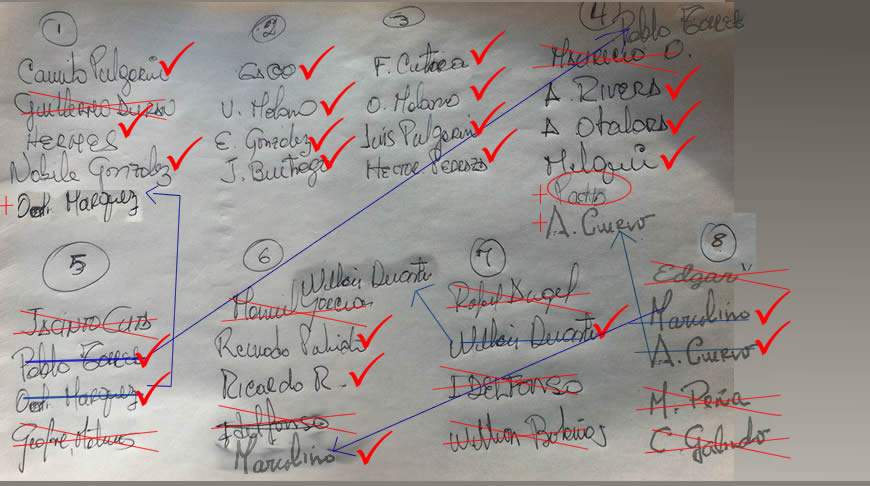 1
Camilo Pulgarin
Guillermo Duran
HERMES
Nobile Gonzalez
+ Marquez
2
GSGO
V. Molano
E. Gonzalez
J. Buitrago
3
F. Cutiva
O. Molano
Luis Pulgarin
HECTOR PEDRAZA
4
Pablo Torres
Mauricio O.
A. RIVERA
A OTALORA
Melqui
+
+ A. Cuervo
5
JACINTO
Pablo Torres
Marquez
Molano
6
Willian Duarte
Manuel Garcia
Ricardo R.
Idelfonso
Marcolino
7
Rafael Angel
Willian Duarte
IDELFONSO
William Bolaños
8
Edgar
Marcolino
A. Cuervo
M. Peña
C. Galindo